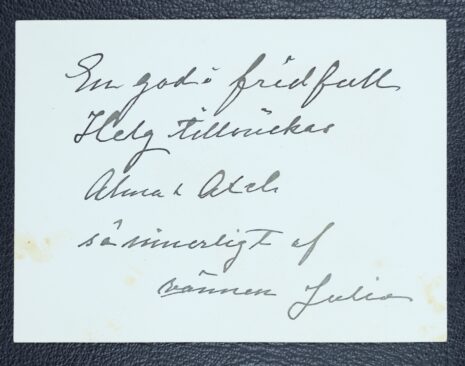 En god & fridfull
Helg tillönskas
Alma & Axel
så innerligt af
vännen Julia